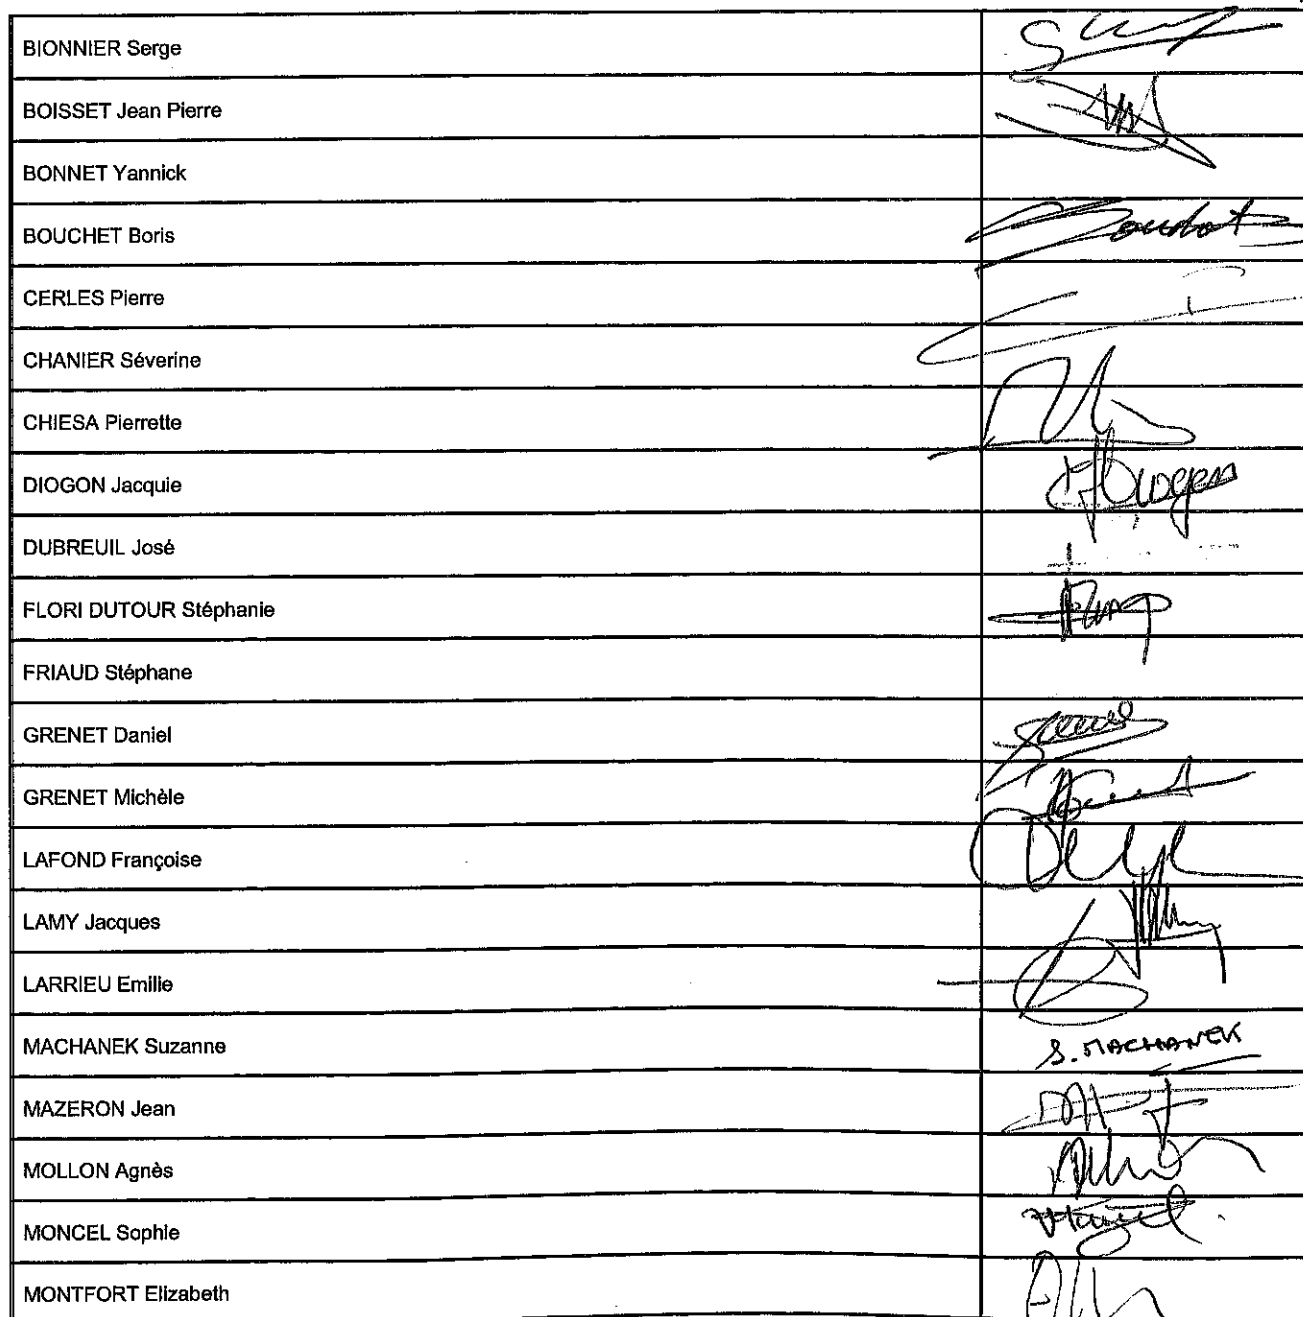 BIONNIER Serge
BOISSET Jean Pierre
BONNET Yannick
BOUCHET Boris
CERLES Pierre
CHANIER Séverine
CHIESA Pierrette
DIOGON Jacquie
DUBREUIL José
FLORI DUTOUR Stéphanie
FRIAUD Stéphane
GRENET Daniel
GRENET Michèle
LAFOND Françoise
LAMY Jacques
LARRIEU Emilie
MACHANEK Suzanne S. MACHANEK
MAZERON Jean
MOLLON Agnès
MONCEL Sophie
MONTFORT Elizabeth